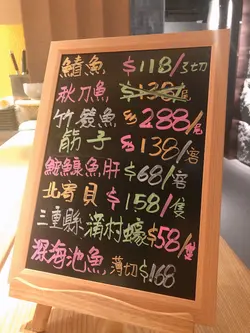 鰆魚 $118/3切
秋刀魚 $138/尾
竹筴魚 $288/尾
筋子 $138/客
鮟鱇魚肝 $68/客
北寄貝 $158/隻
三重縣 浦村蠔 $58/隻
深海池魚 薄切 $168